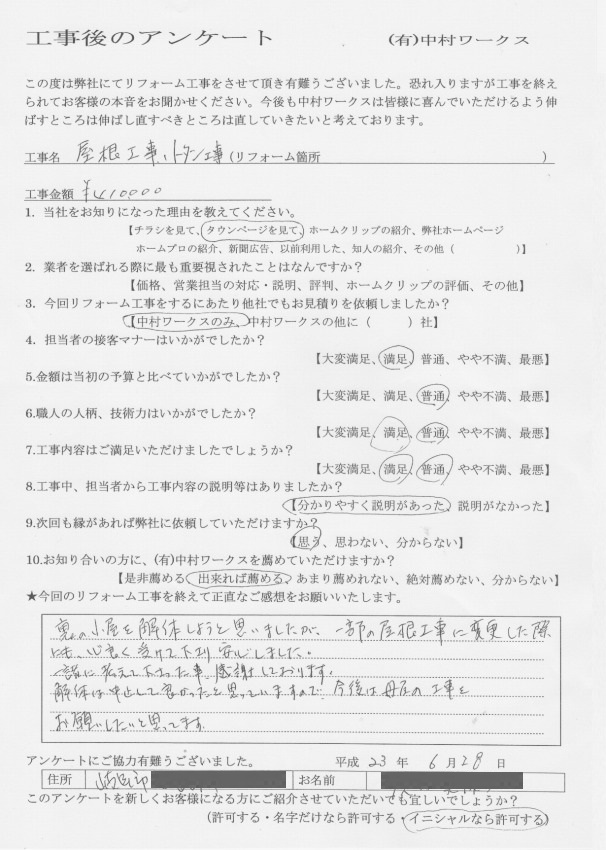 工事後のアンケート　(有)中村ワークス
この度は弊社にてリフォーム工事をさせて頂き有難うございました。恐れ入りますが工事を終え
られてお客様の本音をお聞かせください。今後も中村ワークスは皆様に喜んでいただけるよう伸
ばすところは伸ばし直すべきところは直していきたいと考えております。
工事名　屋根工事、トタン工事(リフォーム箇所　)
工事金額　¥410,000
1. 当社をお知りになった理由を教えてください。
【チラシを見て、タウンページを見て、ホームクリップの紹介、弊社ホームページ
ホームプロの紹介、新聞広告、以前利用した、知人の紹介、その他（　）】
2. 業者を選ばれる際に最も重要視されたことはなんですか？
【価格、営業担当の対応・説明、評判、ホームクリップの評価、その他】
3. 今回リフォーム工事をするにあたり他社でもお見積りを依頼しましたか？
【中村ワークスのみ、中村ワークスの他に（　）社】
4. 担当者の接客マナーはいかがでしたか？
【大変満足、満足、普通、やや不満、最悪】
5.金額は当初の予算と比べていかがでしたか？
【大変満足、満足、普通、やや不満、最悪】
6.職人の人柄、技術力はいかがでしたか？
【大変満足、満足、普通、やや不満、最悪】
7.工事内容はご満足いただけましたでしょうか？
【大変満足、満足、普通、やや不満、最悪】
8.工事中、担当者から工事内容の説明等はありましたか？
【分かりやすく説明があった、説明がなかった】
9.次回も縁があれば弊社に依頼していただけますか？
【思う、思わない、分からない】
10.お知り合いの方に、(有)中村ワークスを薦めていただけますか？
【是非薦める、出来れば薦める、あまり薦めれない、絶対薦めない、分からない】
★今回のリフォーム工事を終えて正直なご感想をお願いいたします。
裏の小屋を解体しようと思いましたが、一部の屋根工事に変更した際
にも、心良く受けて下さり安心しました。
教えて下さった事、感謝しております。
解体は中止して良かったと思っていますので、今後は母屋の工事を
お願いしたいと思ってます。
アンケートにご協力有難うございました。　平成　23　年　6　月　28　日
住所　お名前
このアンケートを新しくお客様になる方にご紹介させていただいても宜しいでしょうか？
（許可する・名字だけなら許可する・イニシャルなら許可する）